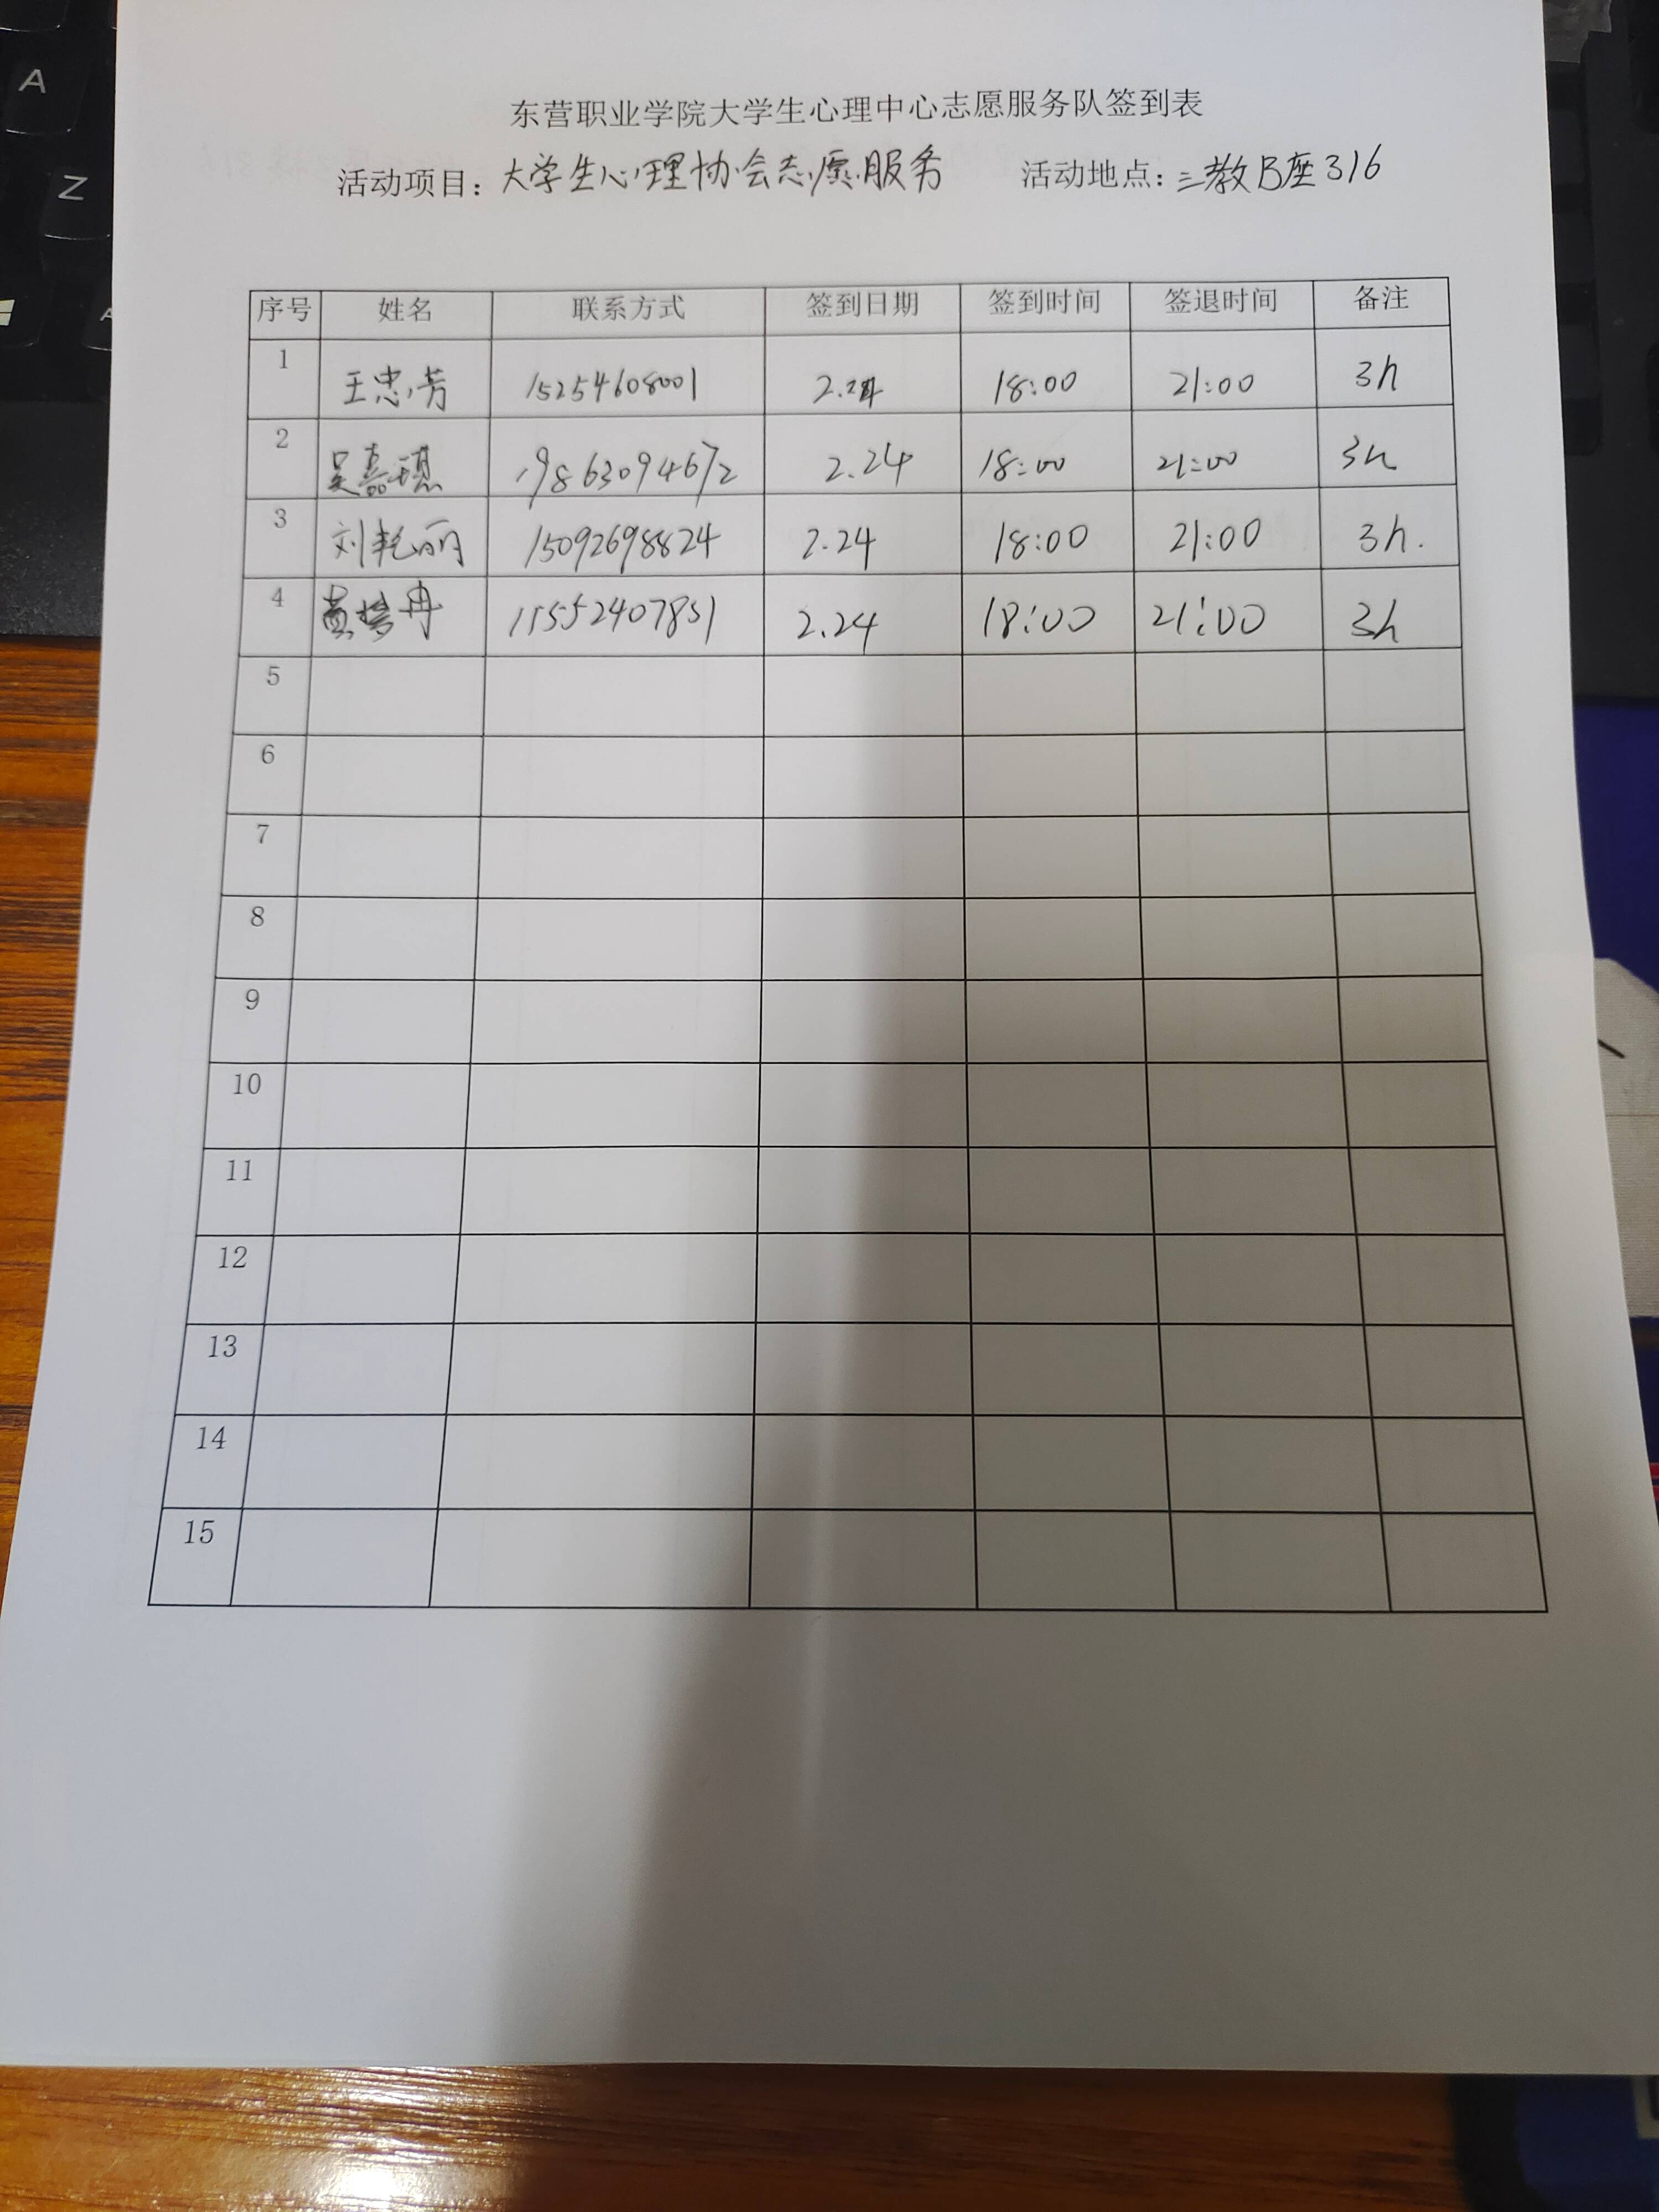 东营职业学院大学生心理中心志愿服务队签到表
活动项目：大学生心理协会志愿服务 活动地点：三教B座316
序号 姓名 联系方式 签到日期 签到时间 签退时间 备注
1 王忠芳 15254608001 2.24 18:00 21:00 3h
2 吴嘉琪 19863094672 2.24 18:00 21:00 3h
3 刘艳丽 15092698824 2.24 18:00 21:00 3h.
4 15552407851 2.24 18:00 21:00 3h
5
6
7
8
9
10
11
12
13
14
15
A
Z